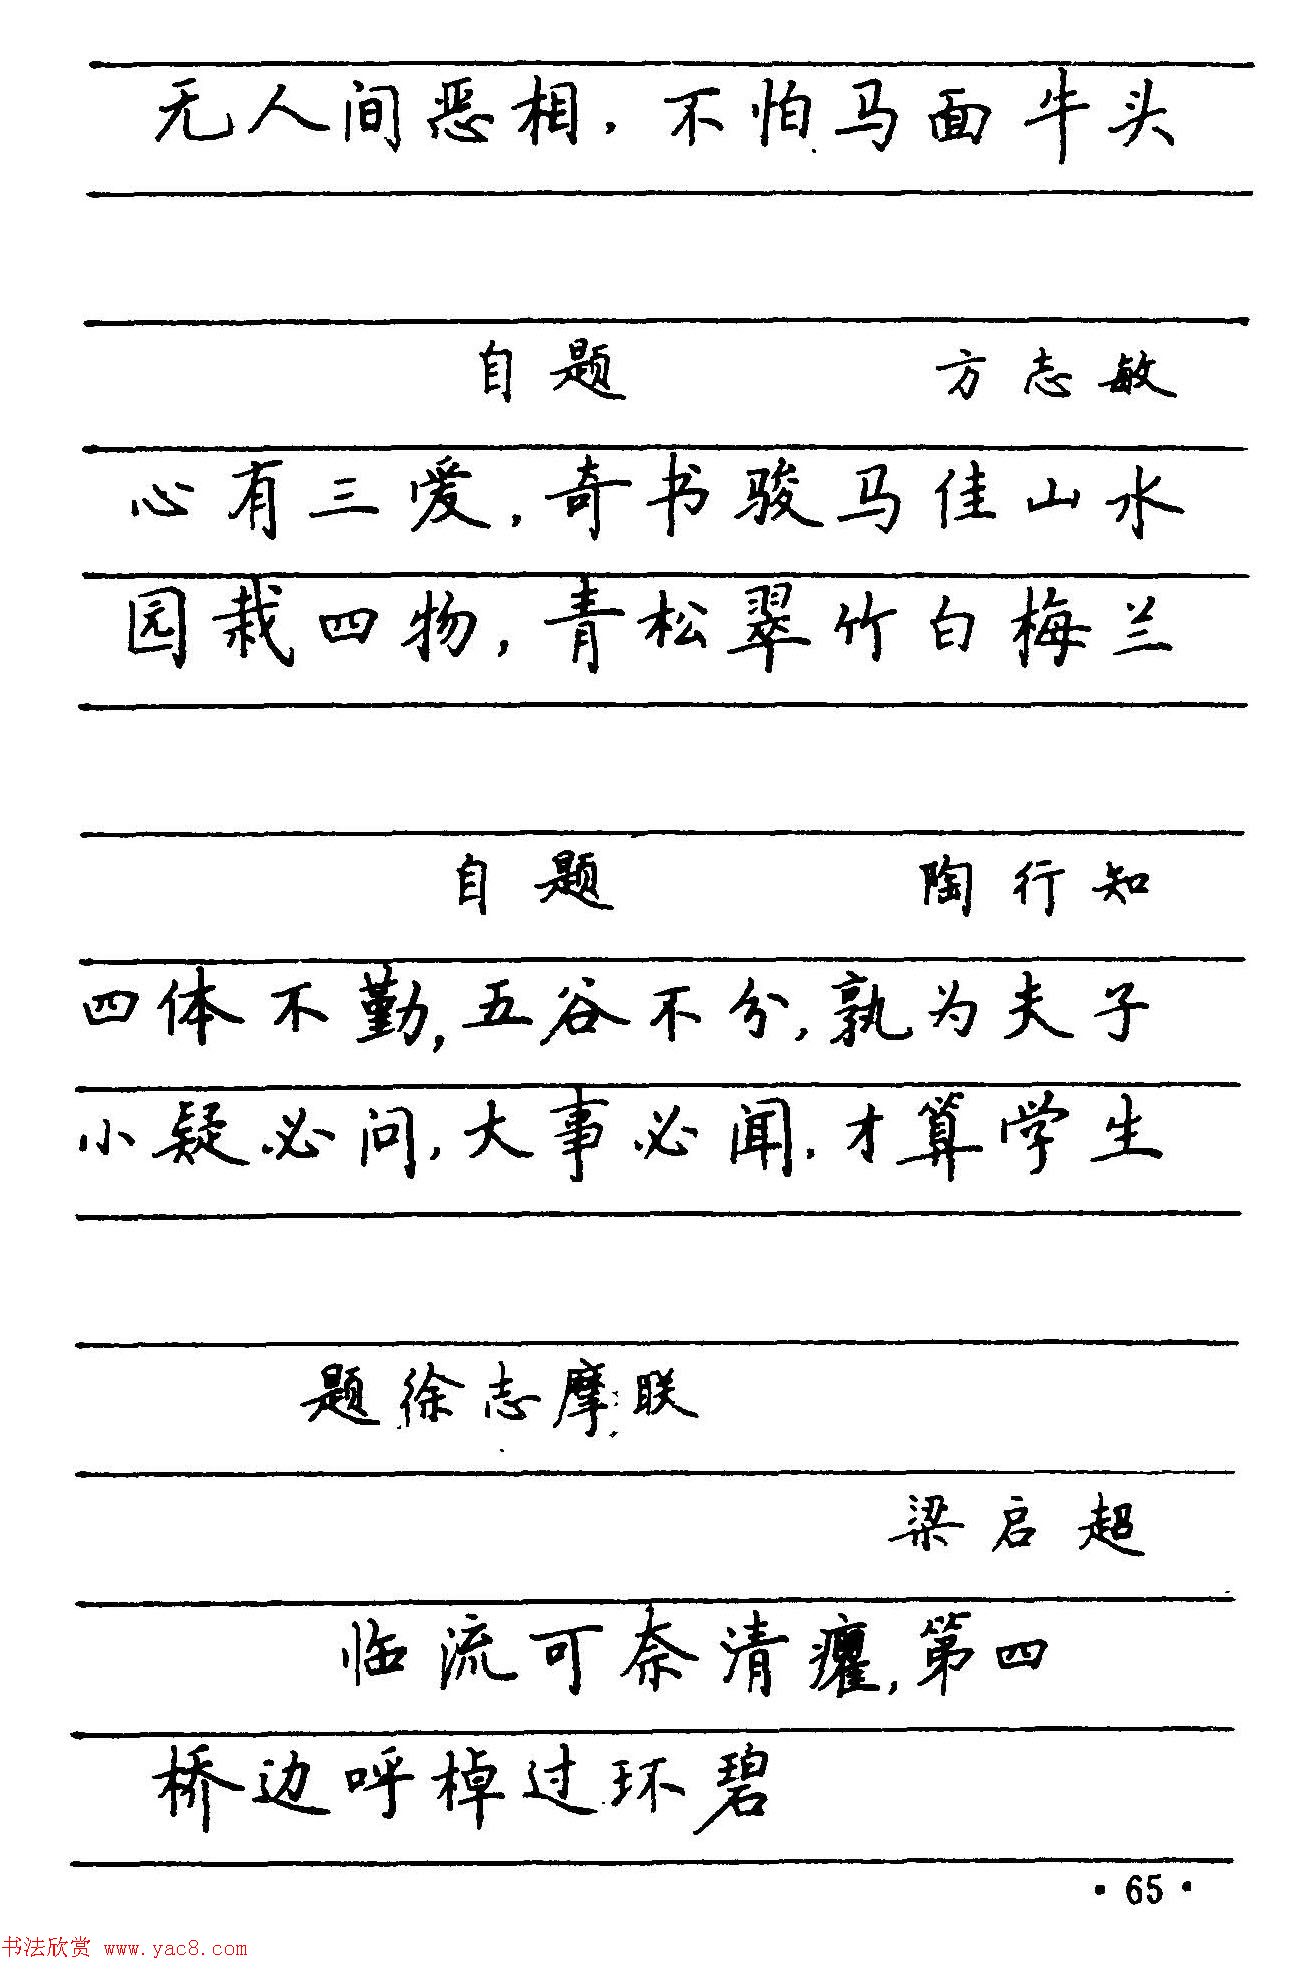 无人间恶相，不怕马面牛头
自题 方志敏
心有三爱，奇书骏马佳山水
园栽四物，青松翠竹白梅兰
自题 陶行知
四体不勤，五谷不分，孰为夫子
小疑必问，大事必闻，才算学生
题徐志摩联
梁启超
临流可奈清癯，第四
桥边呼棹过环碧
·65·
书法欣赏 www.yac8.com